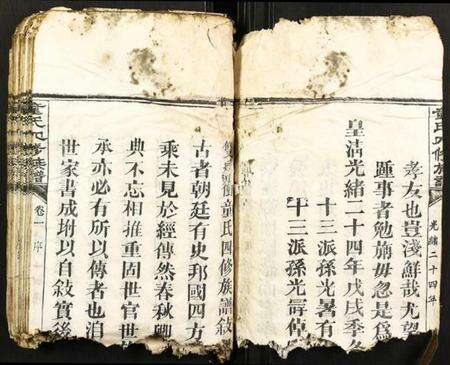 孝友也豈淺鮮哉尤望
踵事者勉旃毋忽是為
皇清光緒二十四年戊戌季冬
十三派孫光暑有
十三派孫光
童氏四修族譜
光緒二十四年
童氏四修族譜敘
古者朝廷有史邦國四方
乘未見於經傳然春秋卿
典不忘相推重固世官世
承亦必有所以傳者也洎
世家書成坿以自敘實後
童氏四修族譜
卷一序